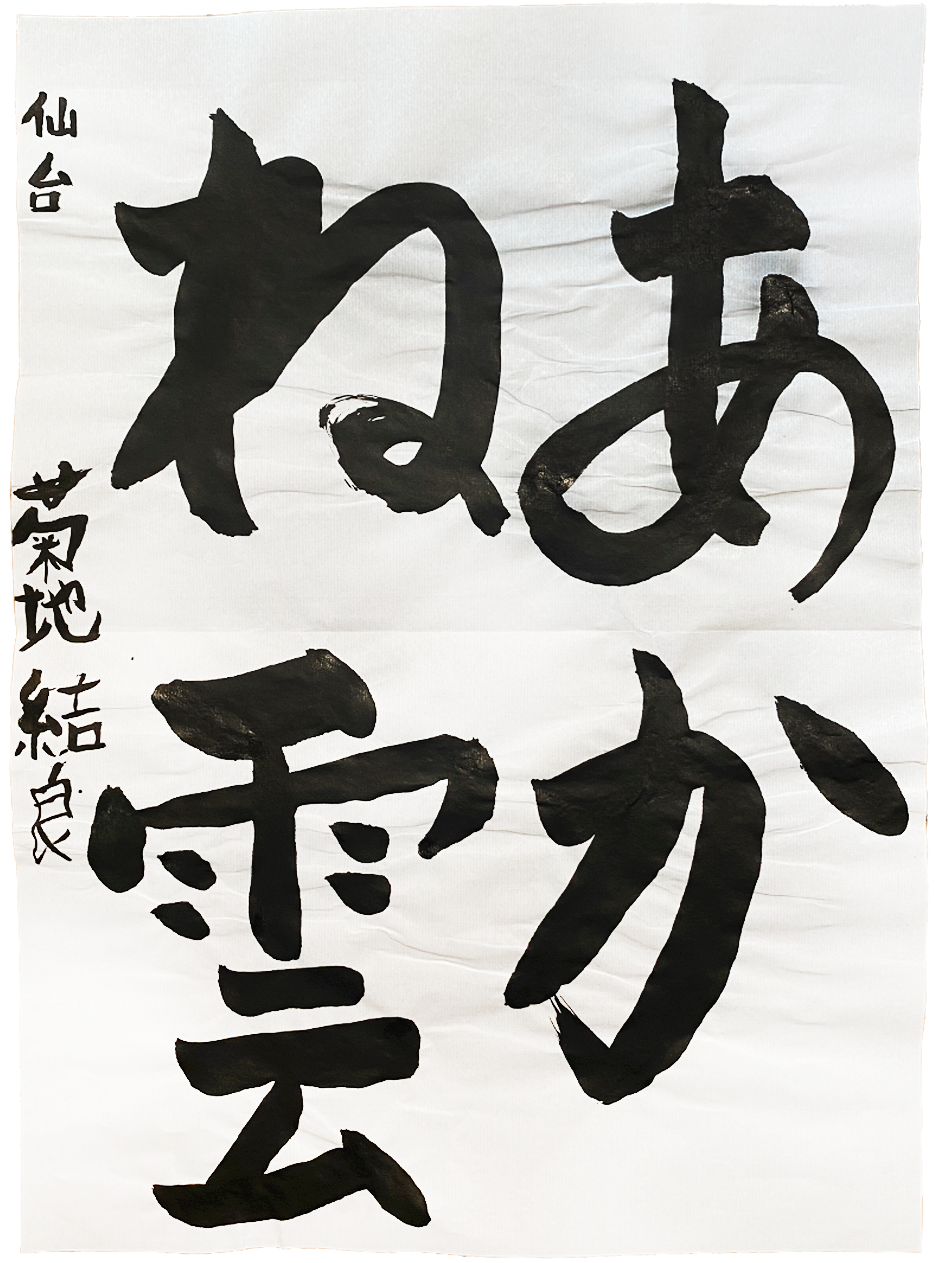 あか
ね雲
仙台 菊地結良